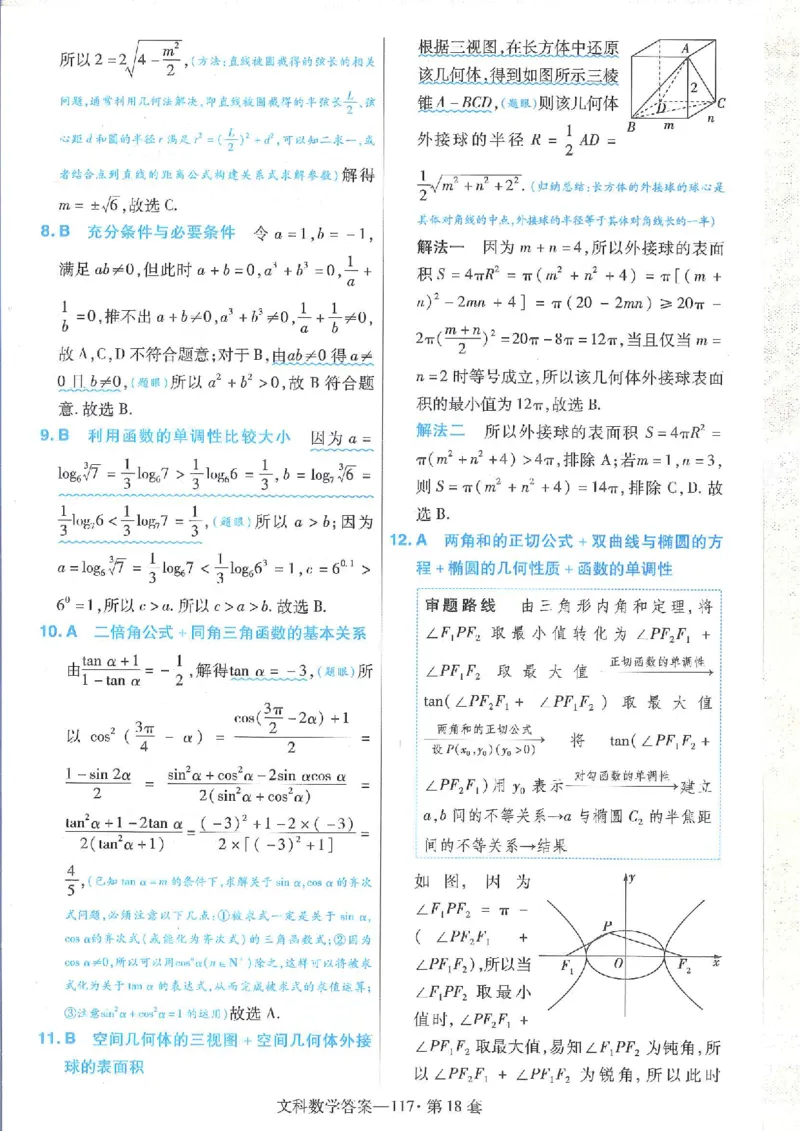 所以2=2√(4-m²/2),(方法:直线被圆截得的弦长的相关
问题,通常利用几何法解决,即直线被圆截得的半弦长L/2、弦
心距d和圆的半径r满足r²=(L/2)²+d²,可以知二求一,或
者结合点到直线的距离公式构建关系式求解参数)解得
m=±√6,故选C.
8.B 充分条件与必要条件 令a=1,b=-1,
满足ab≠0,但此时a+b=0,a³+b³=0,1/a+
1/b=0,推不出a+b≠0,a³+b³≠0,1/a+1/b≠0,
故A,C,D不符合题意;对于B,由ab≠0得a≠
0且b≠0,(题眼)所以a²+b²>0,故B符合题
意.故选B.
9.B 利用函数的单调性比较大小 因为a=
log₆∛7=1/3log₆7>1/3log₆6=1/3,b=log₇∛6=
1/3log₇6<1/3log₇7=1/3,(题眼)所以a>b;因为
a=log₆∛7=1/3log₆7<1/3log₆6³=1,c=6^0.1>
6⁰=1,所以c>a.所以c>a>b.故选B.
10.A 二倍角公式+同角三角函数的基本关系
由(tan α+1)/(1-tan α)=-1/2,解得tan α=-3,(题眼)所
以cos²(3π/4-α)=(cos(3π/2-2α)+1)/2=
(1-sin 2α)/2=(sin²α+cos²α-2sin αcos α)/(2(sin²α+cos²α))=
(tan²α+1-2tan α)/(2(tan²α+1))=((-3)²+1-2×(-3))/(2×[(-3)²+1])=
4/5,(已知tan α=m的条件下,求解关于sin α,cos α的齐次
式问题,必须注意以下几点:①被求式一定是关于sin α,
cos α的齐次式(或能化为齐次式)的三角函数式;②因为
cos α≠0,所以可以用cosⁿα(n∈N*)除之,这样可以将被求
式化为关于tan α的表达式,从而完成被求式的求值运算;
③注意sin²α+cos²α=1的运用)故选A.
11.B 空间几何体的三视图+空间几何体外接
球的表面积
根据三视图,在长方体中还原
该几何体,得到如图所示三棱
锥A-BCD,(题眼)则该几何体
外接球的半径R=1/2AD=
A
2
D
C
B
m
n
1/2√(m²+n²+2²).(归纳总结:长方体的外接球的球心是
其体对角线的中点,外接球的半径等于其体对角线长的一半)
解法一 因为m+n=4,所以外接球的表面
积S=4πR²=π(m²+n²+4)=π[(m+
n)²-2mn+4]=π(20-2mn)≥20π-
2π((m+n)/2)²=20π-8π=12π,当且仅当m=
n=2时等号成立,所以该几何体外接球表面
积的最小值为12π,故选B.
解法二 所以外接球的表面积S=4πR²=
π(m²+n²+4)>4π,排除A;若m=1,n=3,
则S=π(m²+n²+4)=14π,排除C,D.故
选B.
12.A 两角和的正切公式+双曲线与椭圆的方
程+椭圆的几何性质+函数的单调性
审题路线 由三角形内角和定理,将
∠F₁PF₂取最小值转化为∠PF₂F₁+
∠PF₁F₂取最大值 正切函数的单调性→
tan(∠PF₂F₁+∠PF₁F₂)取最大值
两角和的正切公式
设P(x₀,y₀)(y₀>0)→ 将tan(∠PF₁F₂+
∠PF₂F₁)用y₀表示 对勾函数的单调性→建立
a,b间的不等关系→a与椭圆C₂的半焦距
间的不等关系→结果
如图,因为
∠F₁PF₂=π-
(∠PF₂F₁+
∠PF₁F₂),所以当
∠F₁PF₂取最小
值时,∠PF₂F₁+
y
P
F₁
O
F₂
x
∠PF₁F₂取最大值,易知∠F₁PF₂为钝角,所
以∠PF₂F₁+∠PF₁F₂为锐角,所以此时
文科数学答案—117·第18套